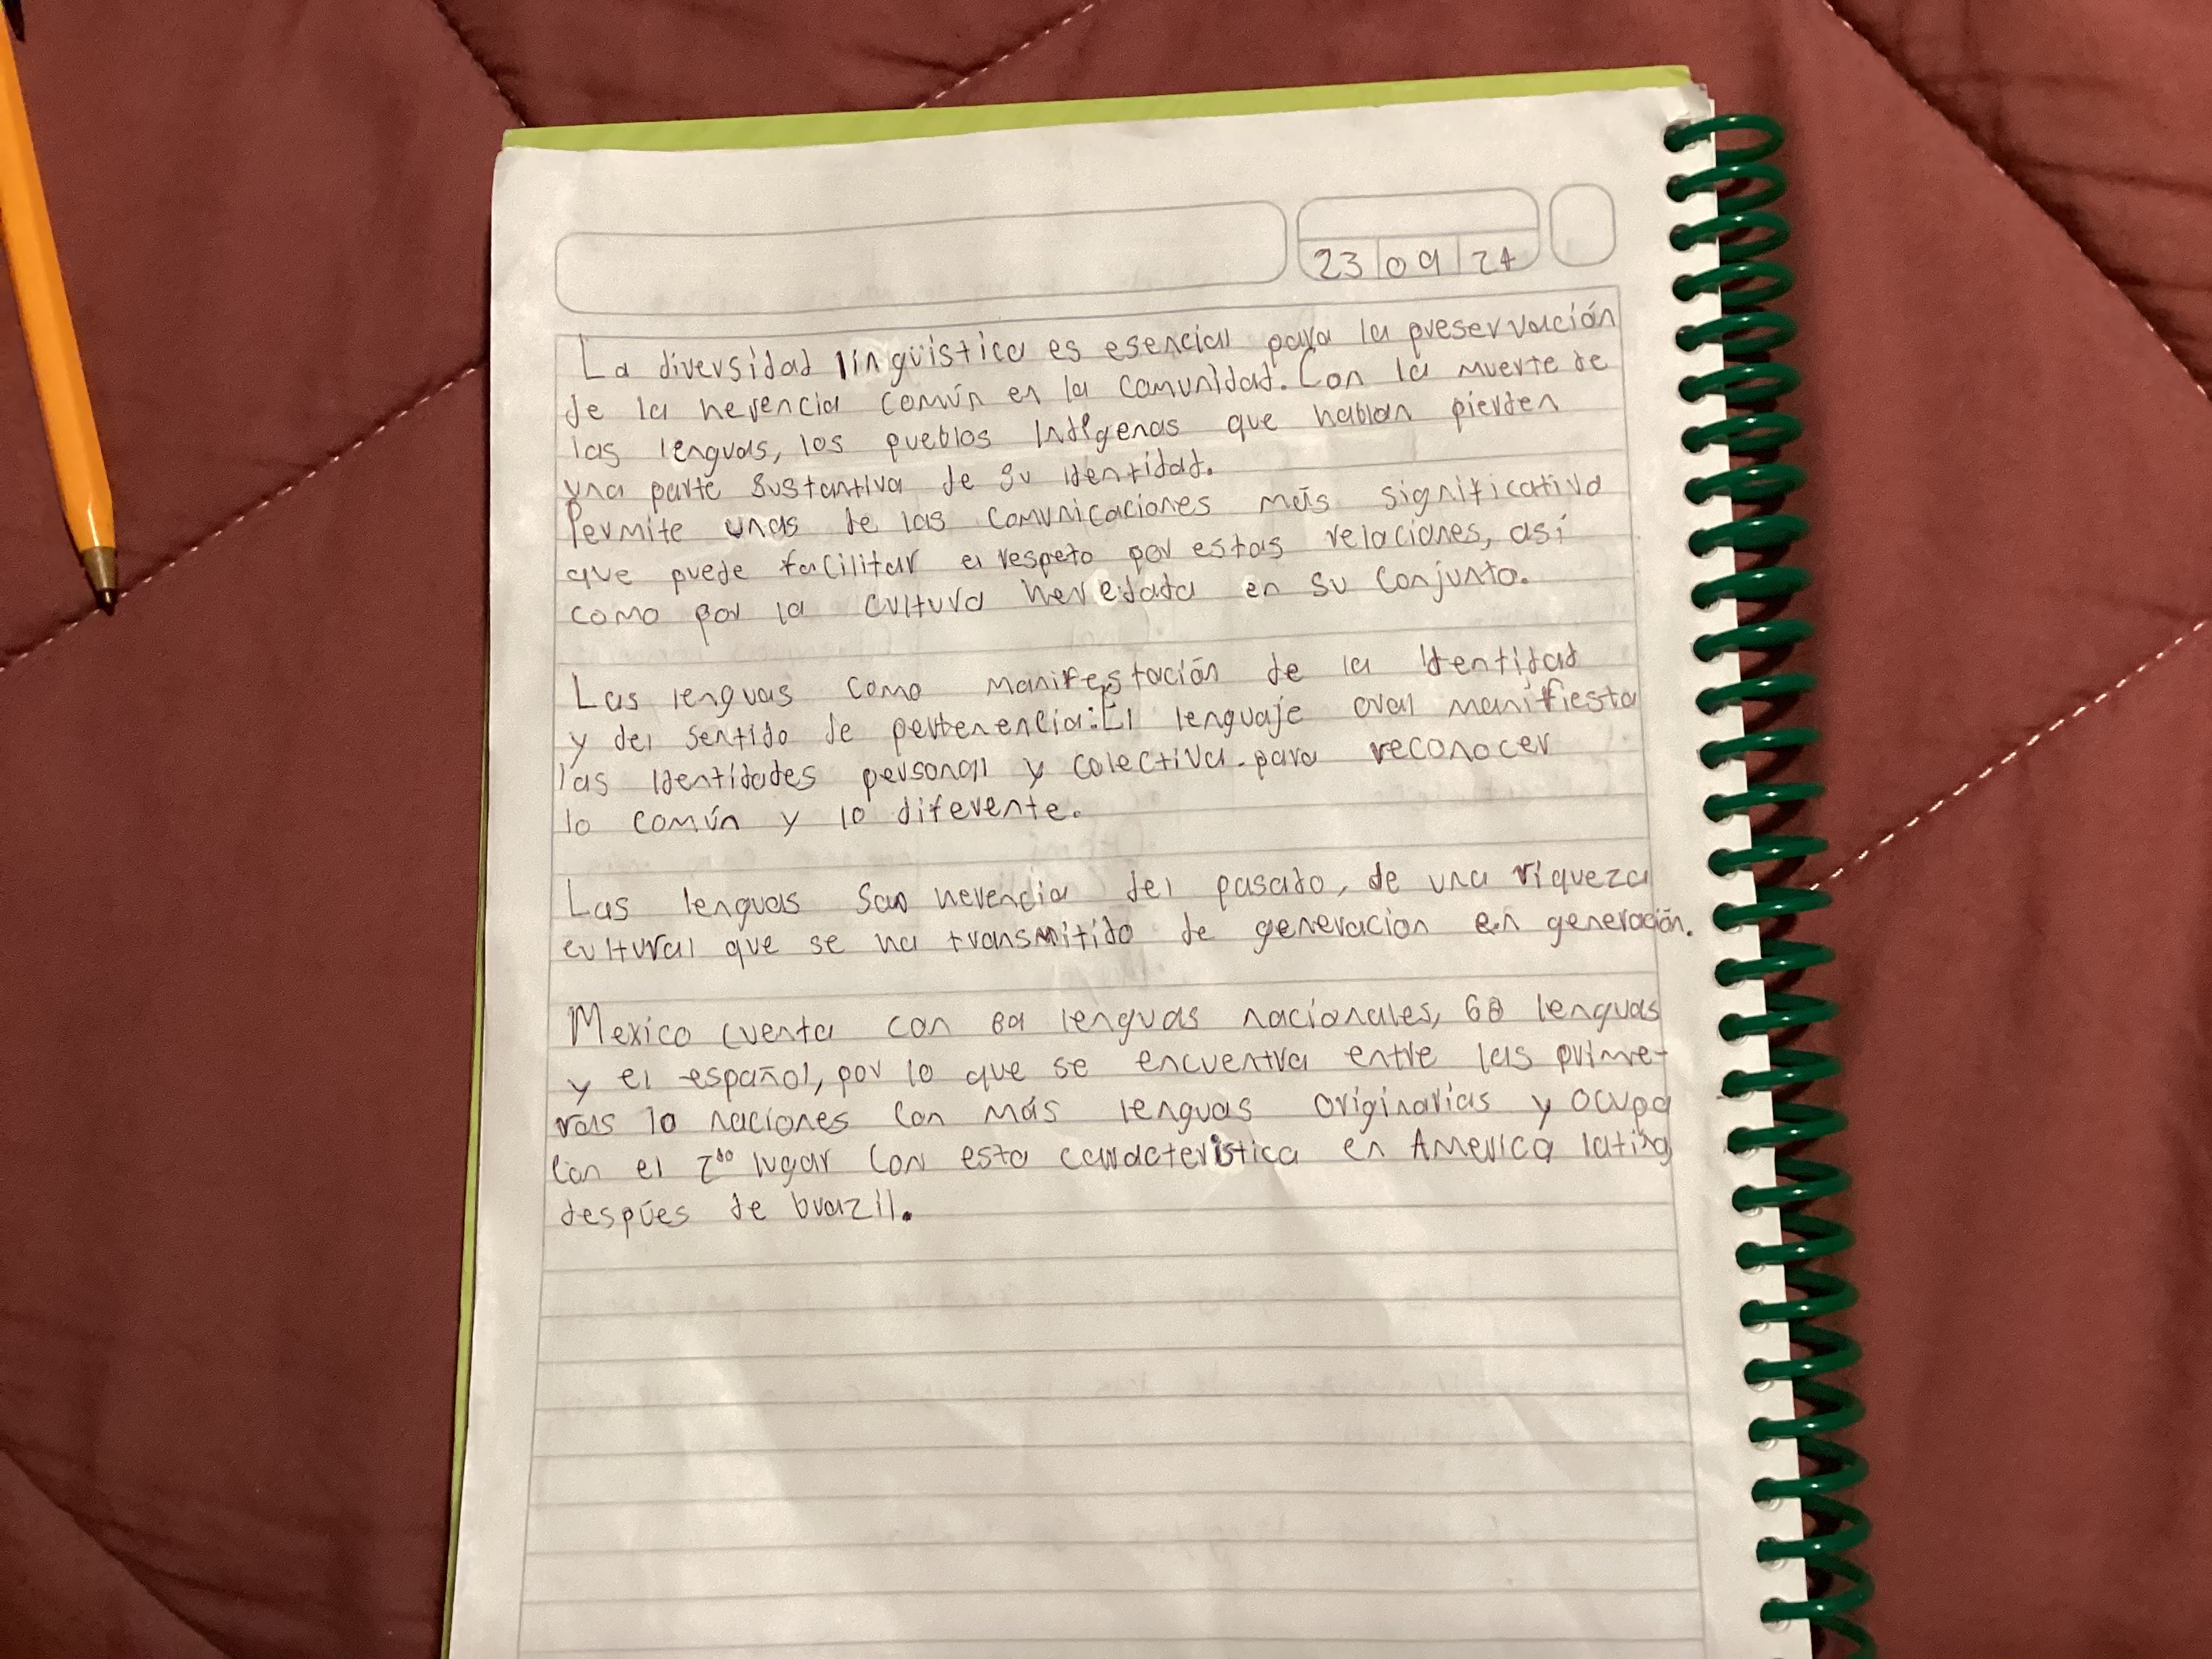 23 09 24
La diversidad lingüistica es esencial para la preservación
de la herencia común en la comunidad. Con la muerte de
las lenguas, los pueblos indígenas que hablan pierden
una parte sustantiva de su identidad.
Permite unas de las comunicaciones más significativa
que puede facilitar el respeto por estas relaciones, así
como por la cultura heredada en su conjunto.
Las lenguas como manifestación de la identidad
y del sentido de pertenencia: El lenguaje oral manifiesta
las identidades personal y colectiva. para reconocer
lo común y lo diferente.
Las lenguas son herencia del pasado, de una riqueza
cultural que se ha transmitido de generacion en generación.
Mexico cuenta con 69 lenguas nacionales, 68 lenguas
y el español, por lo que se encuentra entre las prime-
ras 10 naciones con más lenguas originarias y ocupa
con el 2do lugar con esta caracteristica en America latina
despúes de brazil.